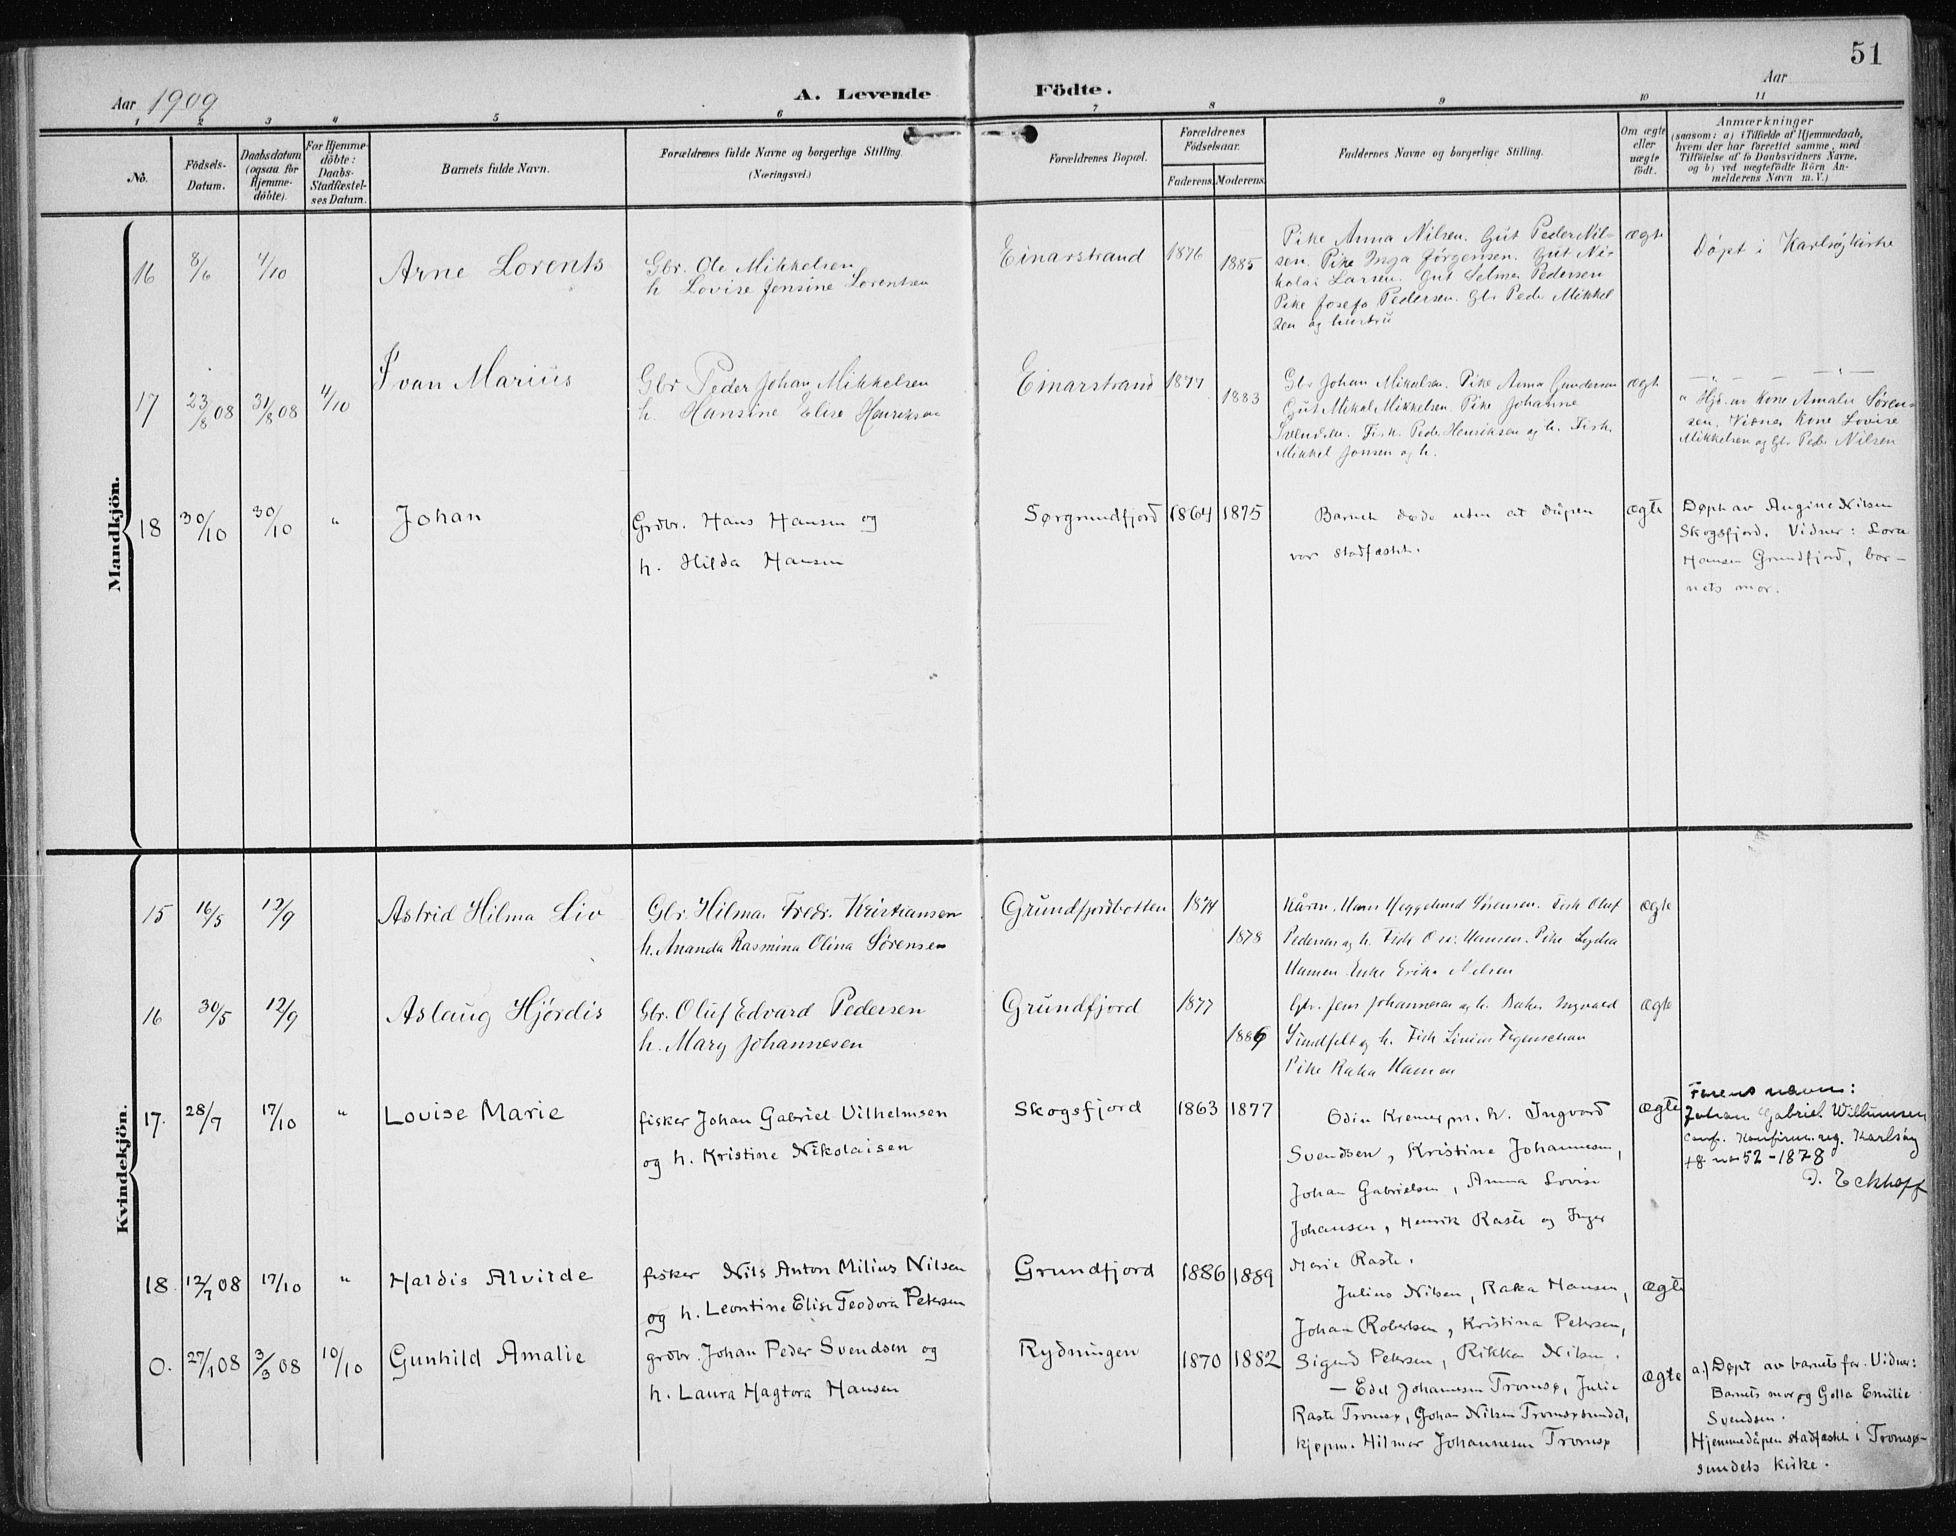 51
Aar 1909
A. Levende Födte.
Aar
1 2 3 4 5 6 7 8 9 10 11
No.
Födsels-
Datum.
Daabsdatum
(ogsaa for
Hjemme-
döbte).
For Hjemme-
döbte:
Daabs-
Stadfæstel-
ses Datum.
Barnets fulde Navn.
Forældrenes fulde Navne og borgerlige Stilling.
(Næringsvei.)
Forældrenes Bopæl.
Forældrenes
Födselsaar.
Faderens. Moderens.
Faddernes Navne og borgerlige Stilling.
Om ægte
eller
uægte
födt.
Anmærkninger
(saasom: a) i Tilfælde af Hjemmedaab,
hvem der har forrettet samme, med
Tilföielse af to Daabsvidners Navne,
og b) ved uægtefödte Börn An-
melderens Navn m. V.)
Mandkjön.
16 8/6 4/10 Arne Lorents
Gbr. Ole Mikkelsen
h Lovise Jensine Lorentsen
Einarstrand 1876 1885
Pike Anna Nilsen. Gut Peder Nil-
sen. Pike Inga Jørgensen. Gut Ni-
kolai Larsen. Gut Selmer Pedersen
Pike Josefa Pedersen. Gbr Peder Mikkel
sen og hustru
ægte
Døpt i Karlsøy kirke
17 23/8 08 31/8 08 4/10 Ivan Marius
Gbr Peder Johan Mikkelsen
h. Hansine Elise Henriksen
Einarstrand 1877 1883
Gbr Johan Mikalsen. Pike Anna Gundersen
Gut Mikal Mikkelsen. Pike Johanne
Svendsen. Fisk. Peder Henriksen og h. Fisk.
Mikkel Jonsen og h.
ægte
— " — — " —
a Hjd. av Kone Amalie Søren-
sen. Vidner Kone Lovise
Mikkelsen og Gbr Peder Nilsen
18 30/10 30/10 " Johan
Grdbr. Hans Hansen og
h. Hilda Hansen
Sørgrundfjord 1864 1875
Barnet døde uten at dåpen
var stadfæstet.
ægte
Døpt av Angine Nilsen
Skogsfjord. Vidner: Lora
Hansen Grundfjord, bar-
nets mor.
Kvindekjön.
15 16/5 12/9 Astrid Hilma Liv
Gbr. Hilmar Fredr. Kristiansen
h. Ananda Rasmina Olina Sørensen
Grundfjordbotten 1874 1878
Hans Heggelund Sørensen. Fisk Oluf
Pedersen og h. Fisk Hansen. Pike Lydia
Hansen. Enke Erika Nilsen
ægte
16 30/5 12/9 Aslaug Hjørdis
Gbr. Oluf Edvard Pedersen
h. Mary Johannesen
Grundfjord 1877 1886
Gbr. Jens Johannesen og h. Ingvald
Sundfelt og h. Fisk Figenschau
Pike Raka Hansen
ægte
17. 28/7 17/10 " Lovise Marie
fisker Johan Gabriel Vilhelmsen
og h. Kristine Nikolaisen
Skogsfjord 1863 1877
Odin Kremer pm. h. Ingvard
Svendsen, Kristine Johannesen,
Johan Gabrielsen, Anna Lovise
Johansen, Henrik Raste og Inger
Marie Raste.
ægte
Farens navn:
Johan Gabriel Willumsen
conf. Konfirm.reg. Karlsøy
52 - 1878
D. Eckhoff
18 12/7 08 17/10 " Haldis Alvilde
fisker Nils Anton Milius Nilsen
og h. Leontine Elise Teodora Petersen
Grundfjord 1886 1889
Julius Nilsen, Raka Hansen,
Johan Robertsen, Kristina Petersen,
Sigurd Petersen, Rikka Nilsen.
ægte
0. 27/1 08 3/3 08 10/10 Gunhild Amalie
grdbr. Johan Peder Svendsen og
h. Laura Hagtora Hansen
Rydningen 1870 1882
— Edel Johannesen Tromsø, Julie
Raste Tromsø, Johan Nilsen Tromsøsundet,
kjøpm. Hilmar Johannesen Tromsø
ægte
a.) Døpt av barnets far. Vidner:
Barnets mor og Golla Emilie
Svendsen.
Hjemmedåpen stadfæstet i Tromsø-
sundets kirke.